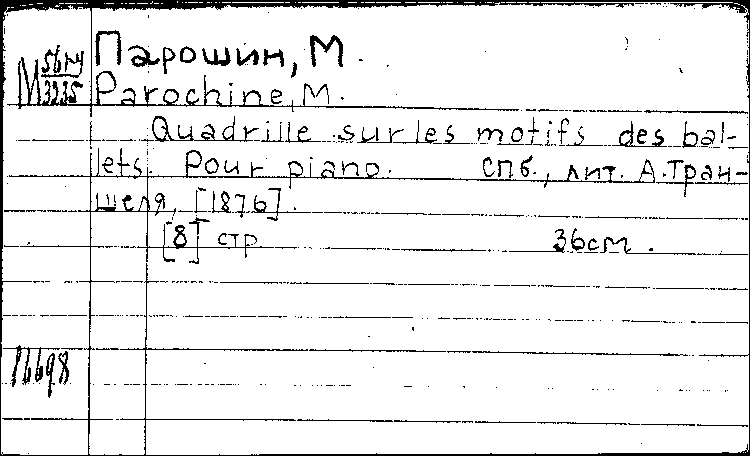 Парошин, М.
М 3235
Parochine, M.
Quadrille sur les motifs des bal-
lets. Pour piano. СПб., лит. А. Тран-
шеля, [1876].
[8] стр 36см.
16698